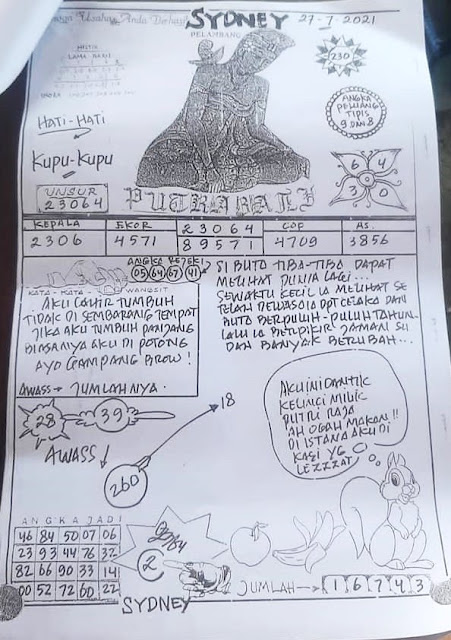 Usaha Anda Berhasil
SYDNEY
27-7-2021
PELAMBANG
MISTIK
LAMA BARU
230
ANGKA
PELUANG
TIPIS
9 DAN 8
HATI-HATI
KUPU-KUPU
UNSUR
23064
6 4
3 0
PUTRA BALI
KEPALA EKOR 23064 COP AS.
2306 4571 89571 4709 3856
ANGKA REJEKI
05 64 67 41
KATA-KATA WANGSIT
AKU LAHIR TUMBUH
TIDAK DI SEMBARANG TEMPAT
JIKA AKU TUMBUH PANJANG
BIASANYA AKU DI POTONG
AYO GAMPANG BROW!
AWASS → JUMLAHNYA.
SI BUTO TIBA-TIBA DAPAT
MELIHAT DUNIA LAGI...
SEWAKTU KECIL IA MELIHAT SE
TELAH DEWASA IA DPT CELAKA DAN
BUTO BERPULUH-PULUH TAHUN.
LALU IA BERPIKIR JAMAN SU
DAH BANYAK BERUBAH...
28 39
18
AWASS
260
AKU INI DANTIK
KELINCI MILIK
PUTRI RAJA
AH OGAH MAKAN!!
DI ISTANA AKU DI
KASI YG
LEZZZAT
ANGKA JADI
46 84 50 07 06
23 93 44 76 32
82 66 90 33 14
00 52 72 60 22
2
SYDNEY
JUMLAH → 1 6 7 4 3